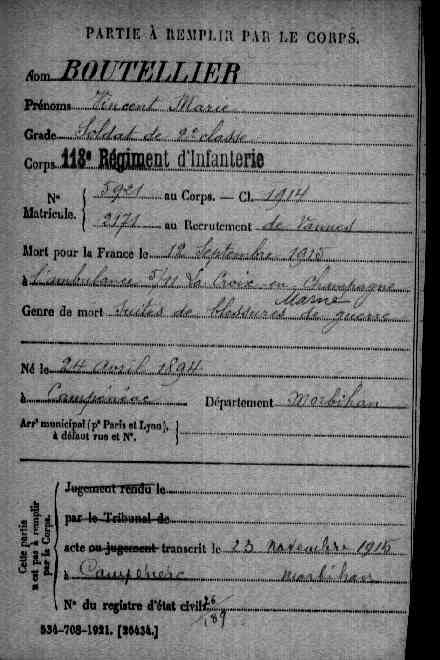 PARTIE À REMPLIR PAR LE CORPS.
Nom BOUTELLIER
Prénoms Vincent Marie
Grade Soldat de 2e classe
Corps 118e Régiment d'Infanterie
N° Matricule. { 5921 au Corps. — Cl. 1914
2171 au Recrutement de Vannes
Mort pour la France le 12 Septembre 1915
à l'ambulance 5/11 La Croix en Champagne
Marne
Genre de mort suites de blessures de guerre
Né le 24 Avril 1894
à Campénéac Département Morbihan
Arr' municipal (p' Paris et Lyon), à défaut rue et N°. }
Cette partie n'est pas à remplir par le Corps.
Jugement rendu le
par le Tribunal de
acte ou jugement transcrit le 23 novembre 1915
à Campénéac Morbihan
N° du registre d'état civil
534-708-1921. [26434.]